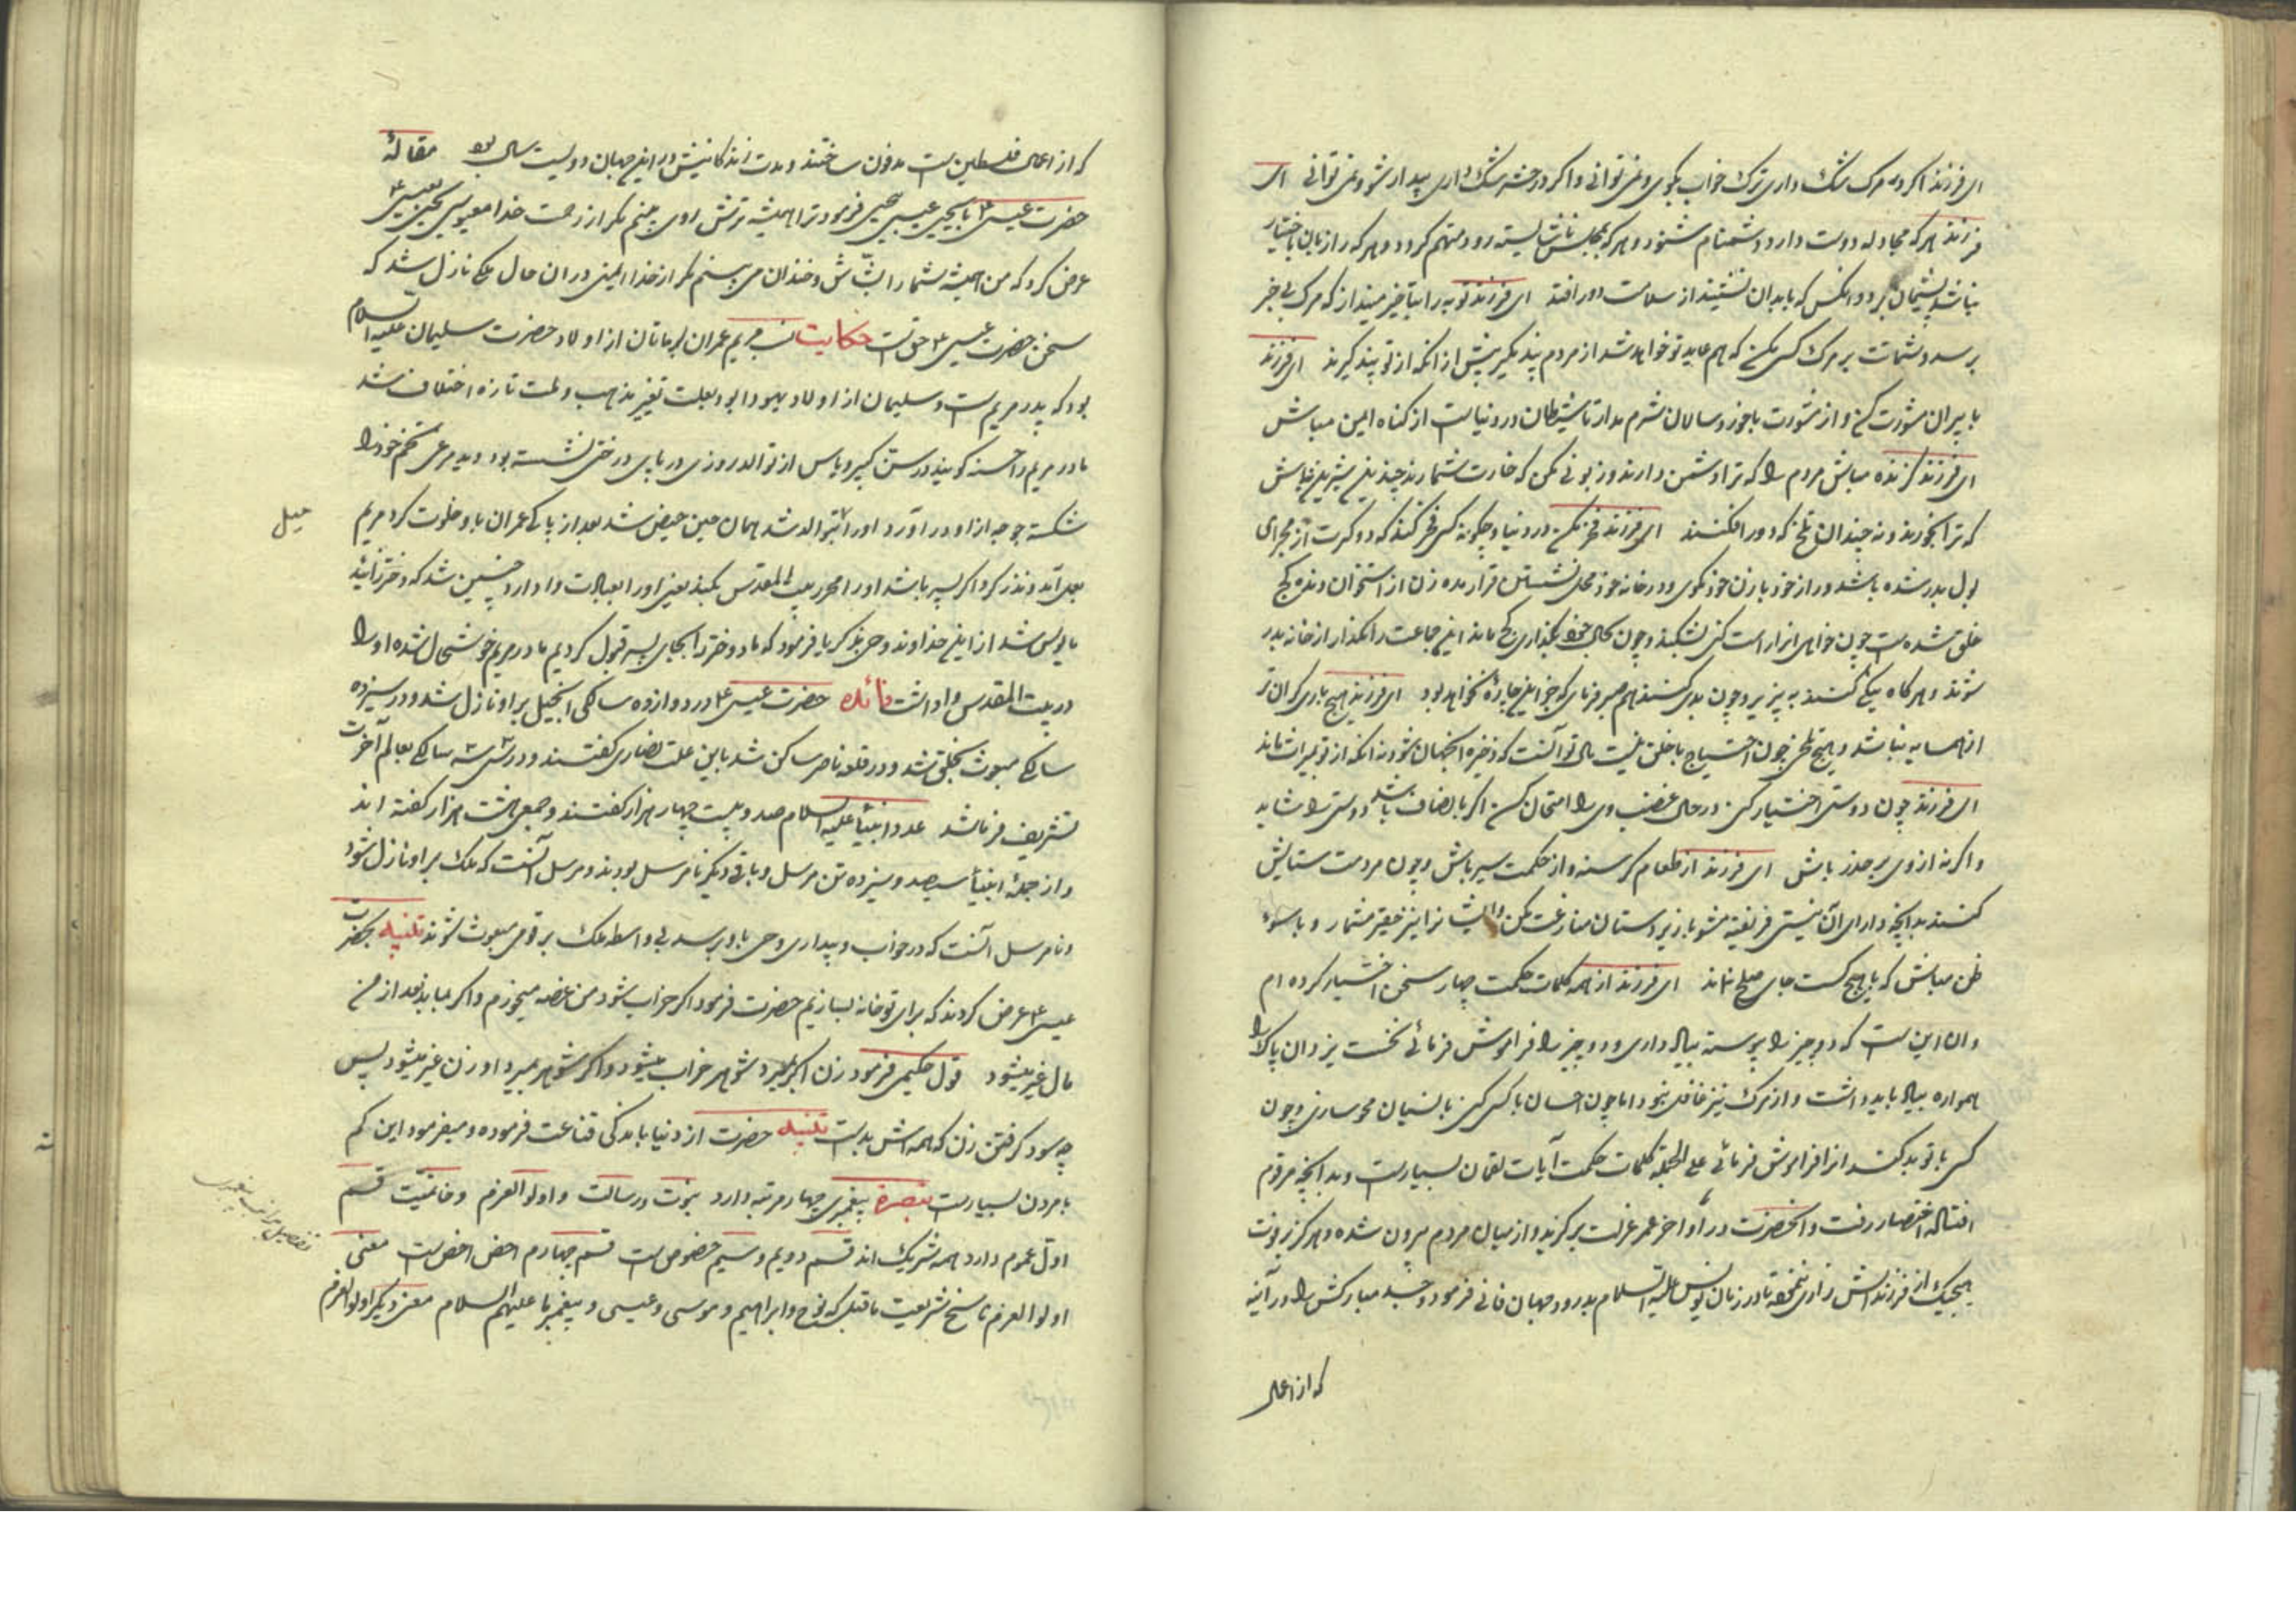 ای فرزند اگر در مرگ شک داری ترک خواب بگوی و نمی توانی و اگر در حشر شک داری بیدار مشو و نمی توانی ای
فرزند هر که مجادله دوست دارد دشنام شنود و هر که بمجلس ناشایسته رود متهم گردد و هر که را زبان باختیار
نباشد پشیمان بود و انکس که با بدان نشیند از سلامت دور افتد ای فرزند توبه را بتاخیر مینداز که مرک بی خبر
برسد و شماتت بر مرک کسی مکن که هم عاید تو خواهد شد از مردم پند بگیر پیش از انکه از تو پند گیرند ای فرزند
با پیران مشورت کن و از مشورت با خورد سالان شرم مدار تا شیطان در دنیاست از کناه ایمن مباش
ای فرزند گزنده مباش مردم را که ترا دشمن دارند و زبونی مکن که خوارت شمارند چندین شیرین مباش
که ترا بخورند و نه چندان تلخ که دور افکنند ای فرزند فخر مکن در دنیا و چگونه کسی فخر کند که دو کرت از مجرای
بول بدر شده باشد و راز خود با زن خود مگوی و در خانه خود محل نشستن قرار مده زن از استخوان دنده کج
خلق شده است چون خواهی انرا راست کنی بشکند و چون بحال خود بگذاری کج ماند این جماعت را مگذار از خانه بدر
شوند و هر کاه نیکی کنند به پذیر و چون بدی کنند هم صبر فرمای که جز این چاره نخواهد بود ای فرزند هیچ باری گران تر
از همسایه بد نباشد و هیچ تلخی چون احتیاج با خلق نیست مال تو آنست که ذخیره انجهان شود نه انکه از تو بمیراث ماند
ای فرزند چون دوستی اختیار کنی در حال غضب وی را امتحان کن اگر با انصاف باشد دوستی را شاید
و اگر نه از وی بر حذر باش ای فرزند از طعام گرسنه و از حکمت سیر باش و چون مردمت ستایش
کنند بدانچه دارای آن نیستی فریفته مشو با زیردستان منازعت مکن و ایشانرا نیز حقیر مشمار و با سوء
ظن مباش که با هیچ کست جای صلح نماند ای فرزند از همه کلمات حکمت چهار سخن اختیار کرده ام
و ان این است که دو چیز را پیوسته بیاد داری و دو چیز را فراموش فرمائی نخست یزدان پاک را
همواره بیاد باید داشت و از مرک نیز غافل نبود اما چون احسان با کسی کنی با نسیان محو سازی و چون
کسی با تو بد کند انرا فراموش فرمائی علی الجمله کلمات حکمت آیات لقمان بسیارست و بدانچه مرقوم
افتاد اختصار رفت و انحضرت در اواخر عمر عزلت برگزید و از میان مردم بیرون شده و هرگز بر فوت
هیچیک از فرزندانش زاری نخفته تا در زمان یونس علیه السلام بدرود جهان فانی فرمود و جسد مبارکش را در آنیه
که از اعمال
که از اعمال فلسطین است مدفون ساختند و مدت زندگانیش در این جهان دویست سال بود مقاله
حضرت عیسی ع با یحیی عیسی یحیی فرمود ترا همیشه ترش روی بینم مکر از رحمت خدا مایوسی یحیی بعیسی ع
عرض کرد که من همیشه شما را بشّاش و خندان می بینم مکر از خدا ایمنی در ان حال ملکی نازل شد که
سخن حضرت عیسی ع حق است حکایت نسب مریم عمران بن ماتان از اولاد حضرت سلیمان علیه السلام
بود که پدر مریم است و سلیمان از اولاد یهودا بود بعلت تغیر مذهب و ملت تازه اختلاف شد
مادر مریم را حسنه گویند در سن کبر و یاس از توالد روزی در پای درختی نشسته بود دید مرغی تخم خود را
شکسته جوجه از او در آورد او را تمنای والد شد همان حین حیض شد بعد از پاکی عمران با او خلوت کرد مریم
بعمل آمد و نذر کرد اگر پسر باشد او را محرر بیت المقدس بکند یعنی او را بعبادت وا دارد چنین شد که دختر زائید
مایوس شد از این خداوند وحی بذکریا فرمود که ما دختر را بجای پسر قبول کردیم مادر مریم خوشحال شده او را
در بیت المقدس وا داشت فائده حضرت عیسی ع در دوازده سالگی انجیل بر او نازل شد و در سیزده
سالگی مبعوث بخلق شد و در قلعه ناصره ساکن شد باین علت نصاری گفتند و در سی سه سالگی بعالم آخرت
تشریف فرما شد عدد انبیاء علیهم السلام صد و بیست چهار هزار گفتند و جمعی هشت هزار گفته اند
و از جمله انبیاء سیصد و سیزده تن مرسل و باقی دیگر نامرسل بودند و مرسل آنست که ملک بر او نازل شود
و نامرسل آنست که در خواب و بیداری وحی باو برسد بی واسطه ملک بر قومی مبعوث شوند تنبیه بحضرت
عیسی ع عرض کردند که برای تو خانه بسازیم حضرت فرمود اگر خراب شود من غصه میخورم و اگر بماند بعد از من
مال غیر میشود قول حکیمی فرمود زن اگر بمیرد شوهر خراب میشود و اگر شوهر بمیرد او زن غیر میشود پس
چه سود گرفتن زن که همه اش بد است تنبیه حضرت از دنیا باندکی قناعت فرموده و میفرمود این کم
با مردن بسیارست تبصره پیغمبری چهار مرتبه دارد نبوت و رسالت و اولو العزم و خاتمیت قسم
اول عموم دارد همه شریک اند قسم دویم و سیم خصوص است قسم چهارم اخص اخص است معنی
اولو العزم ناسخ شریعت ماقبل که نوح و ابراهیم و موسی و عیسی و پیغمبر ما علیهم السلام معنی دیگر اولو العزم
تفصیل مراتب پیغمبری